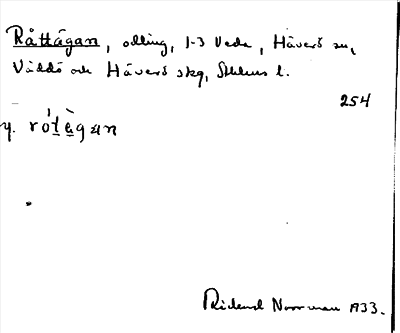 Råttägan, odling, 1-3 Veda, Häverö sn,
Väddö och Häverö skg, Sthlms l.
254
y. rótègan
Rickard Norrman 1933.